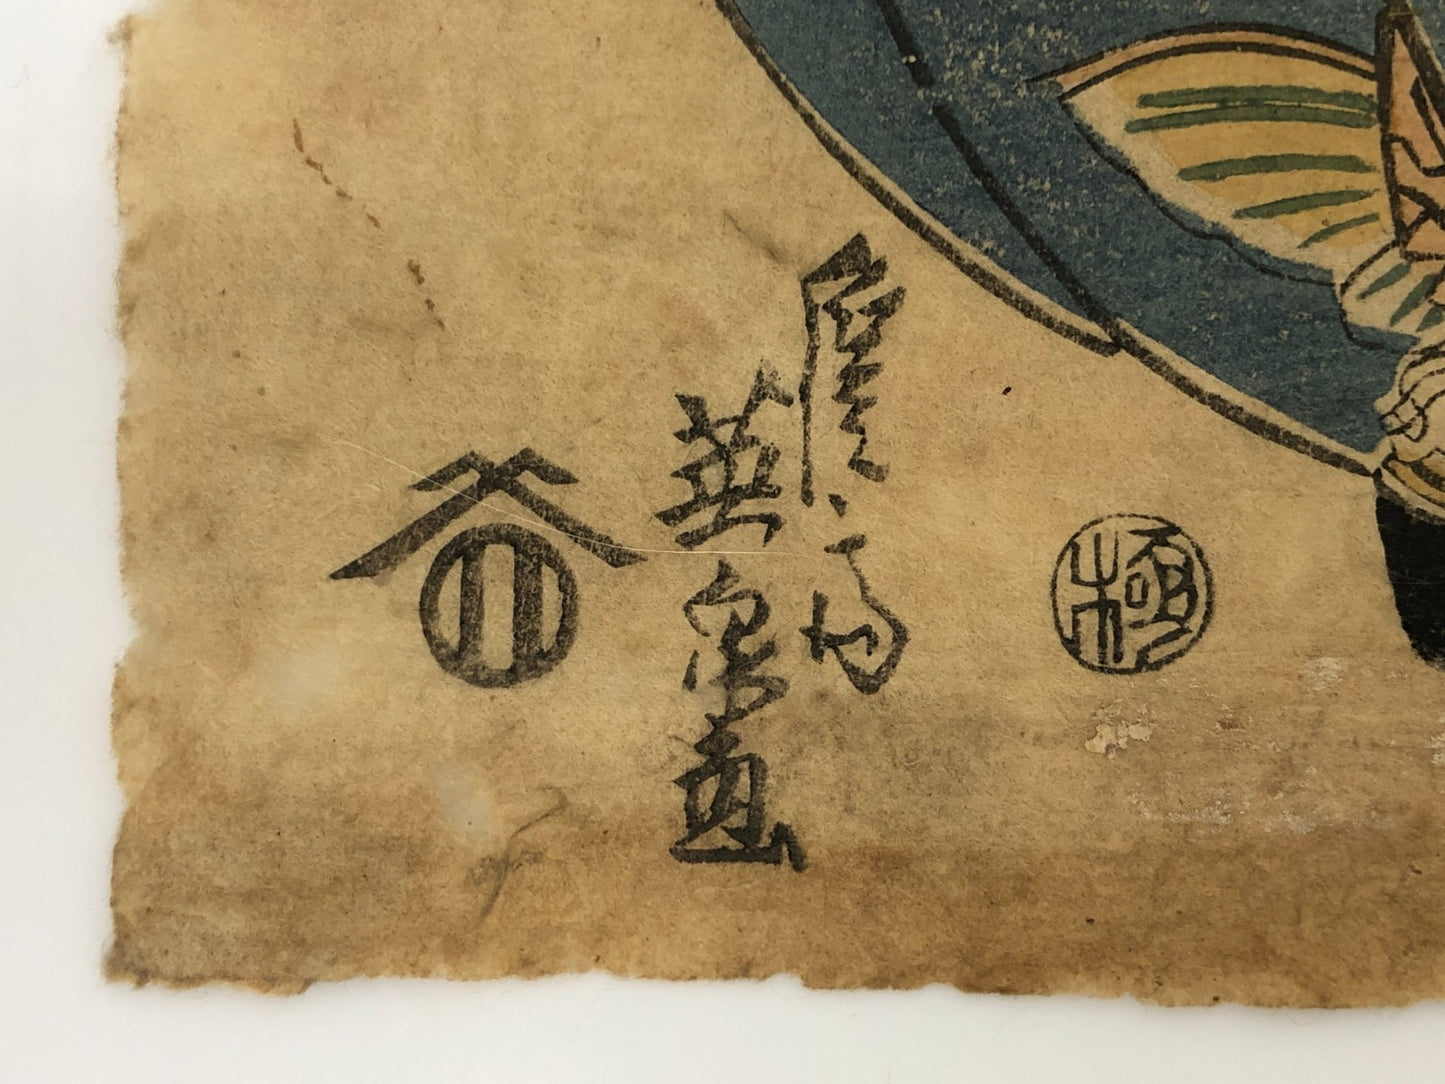 極
應需
英泉画